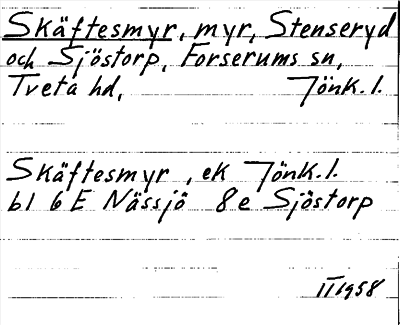 Skäftesmyr, myr, Stenseryd
och Sjöstorp, Forserums sn,
Tveta hd, Jönk. l.
Skäftesmyr, ek Jönk. l.
bl 6 E Nässjö 8 e Sjöstorp
II 1958